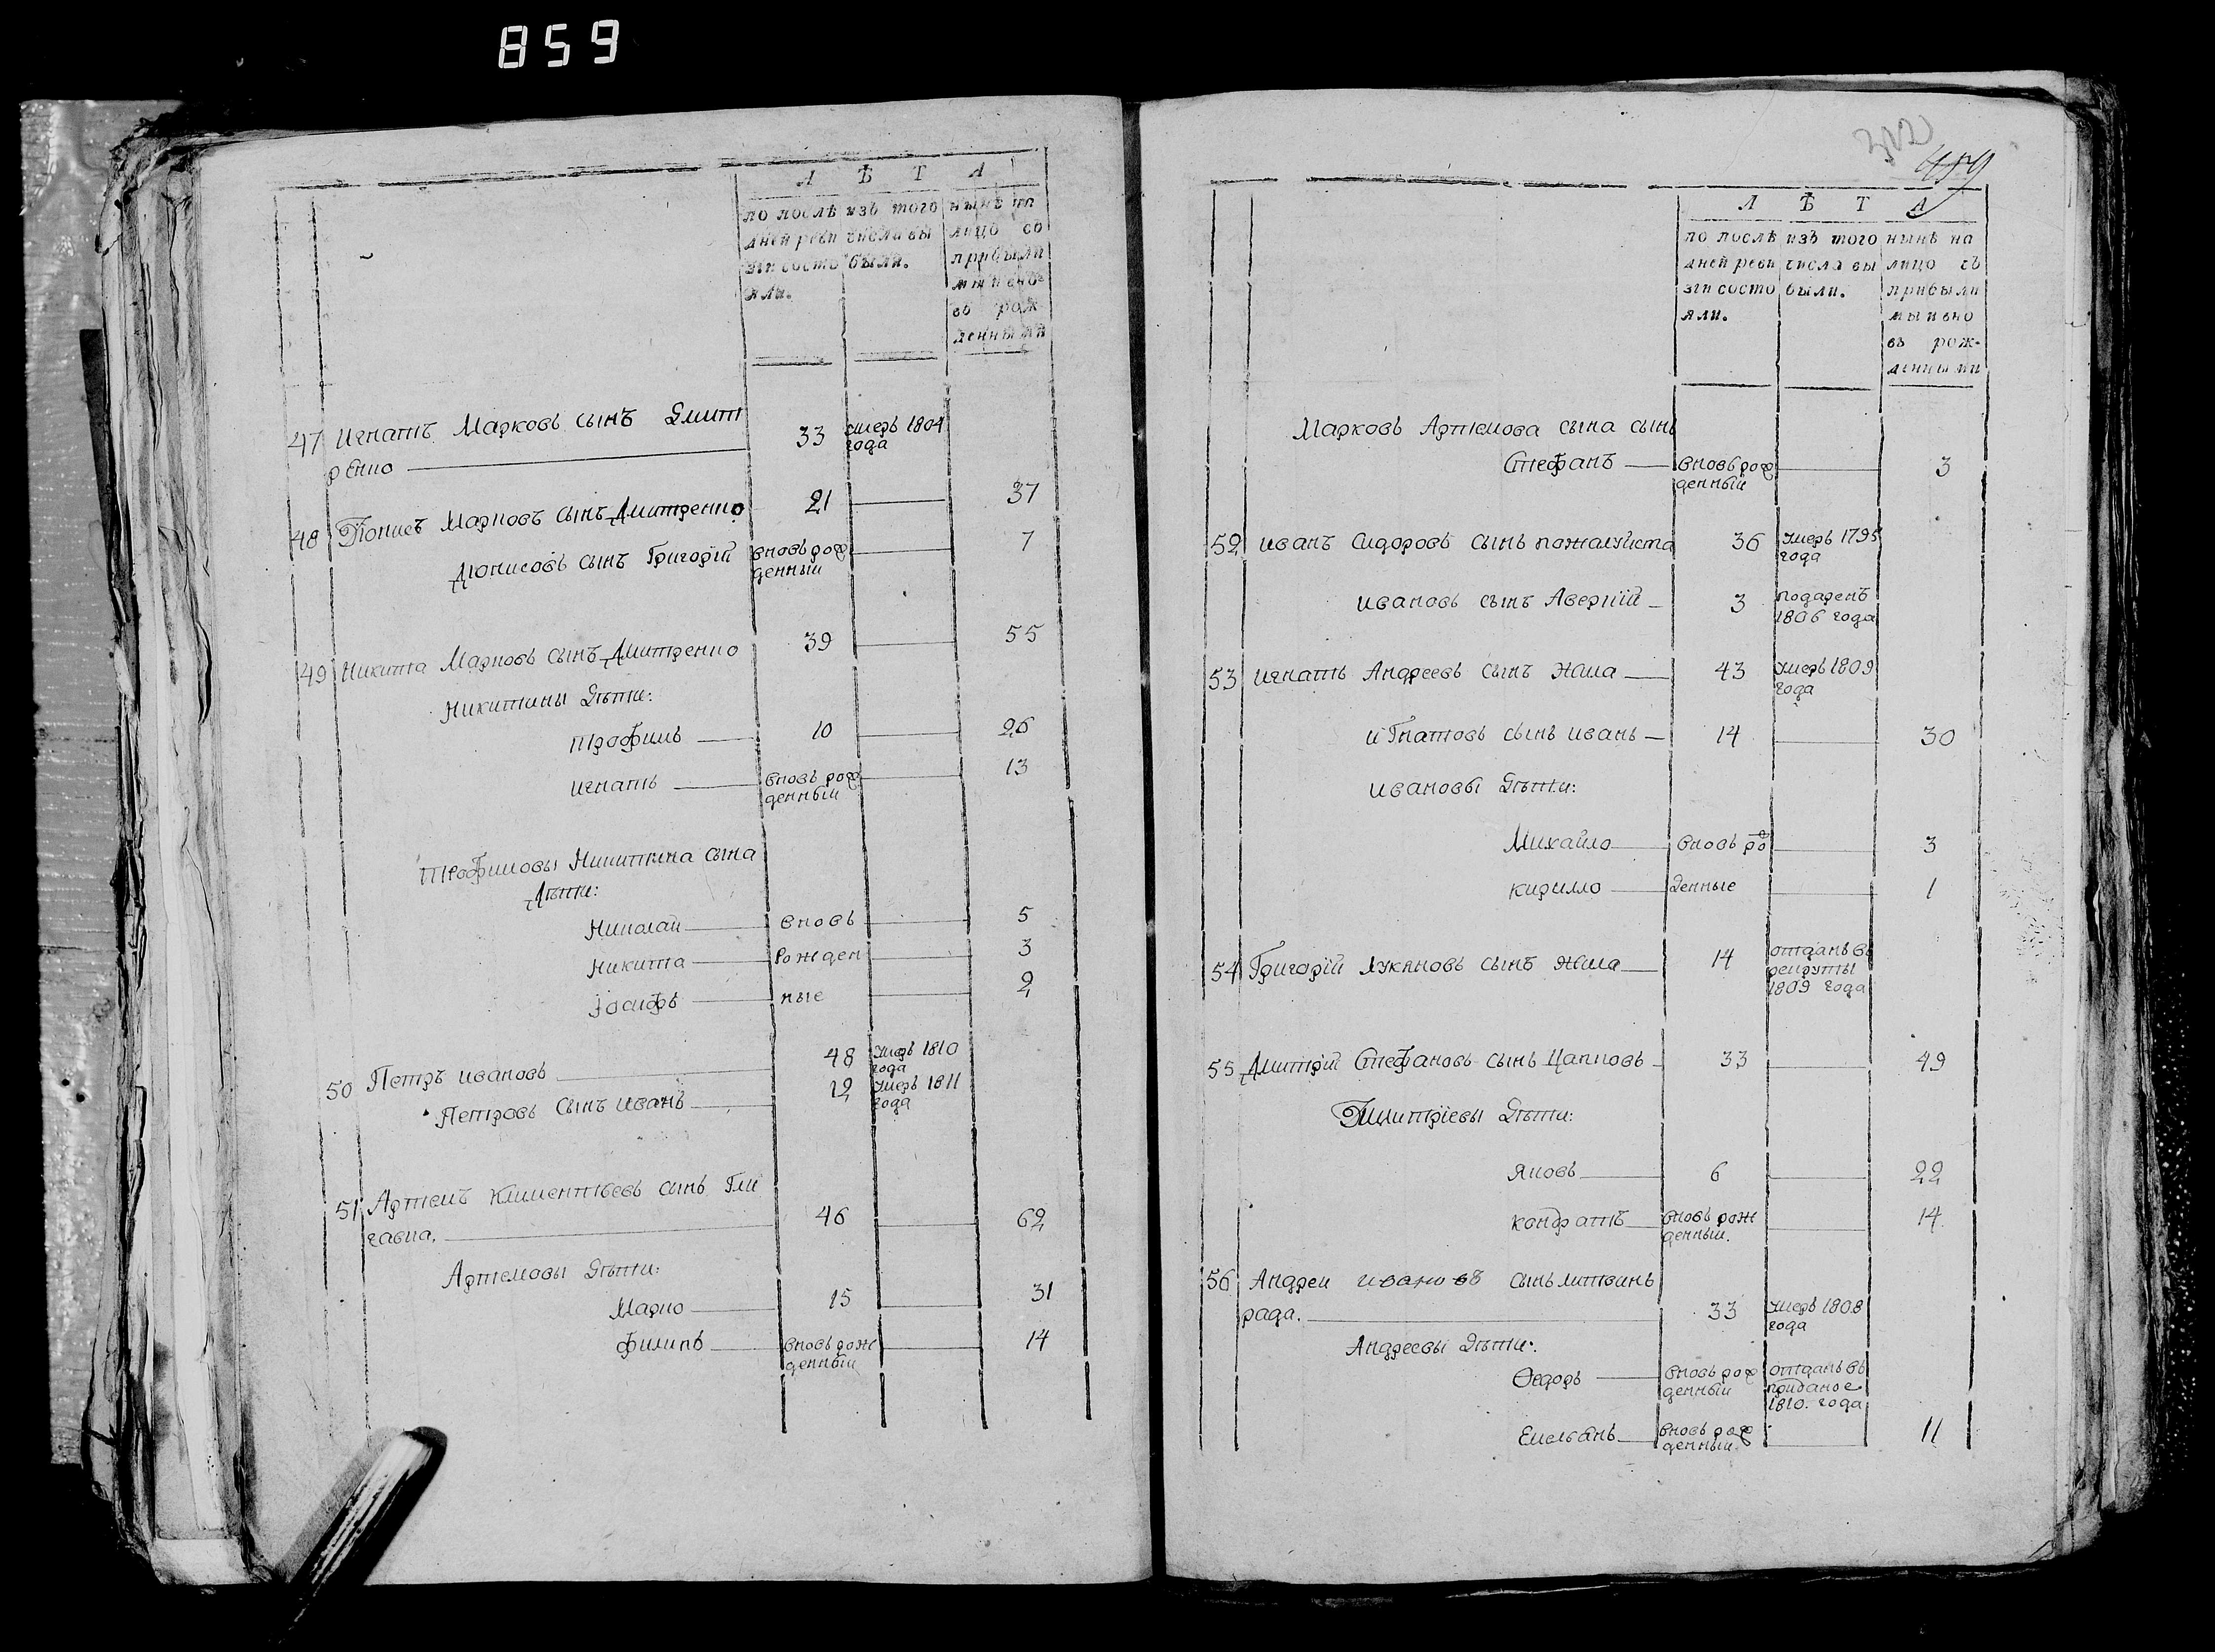 859
Л Ѣ Т А
по послѣ дней реви зіи состо яли.
изъ того числа вы были.
нынѣ на лицо со прибылы ми и вно въ рож денными
47 Игнатъ Марковъ сынъ Дмит 33 умеръ 1804 года
ренко
48 Діонисъ Марковъ сынъ Дмитренко 21 37
Діонисовъ сынъ Григорій вновь рож денный 7
49 Никита Марковъ сынъ Дмитренко 39 55
Никитины дѣти:
Трофимъ 10 26
Игнатъ вновь рож денный 13
Трофимовы Никитина сына
дѣти:
Николай вновь 5
Никита рожден 3
Іосифъ ные 2
50 Петръ Ивановъ 48 умеръ 1810 года
Петровъ сынъ Иванъ 12 умеръ 1811 года
51 Артемъ Климентьевъ сынъ Гли
гавка. 46 62
Артемовы дѣти:
Марко 15 31
Филипъ вновь рож денный 14
302
459
Л Ѣ Т А
по послѣ дней реви зіи состо яли.
изъ того числа вы были.
нынѣ на лицо съ прибылы ми и вно въ рож- денными
Марковъ Артемова сына сынъ
Стефанъ вновь рож денный 3
52 Иванъ Сидоровъ сынъ Пожалуйста 36 умеръ 1795 года
Ивановъ сынъ Аверкій 3 подаренъ 1806 года
53 Игнатъ Андреевъ сынъ Жила 43 умеръ 1809 года
Игнатовъ сынъ Иванъ 14 30
Ивановы дѣти:
Михайло вновь ро 3
Кирилло жденные 1
54 Григорій Лукяновъ сынъ Жила 14 отданъ въ рекруты 1809 года
55 Дмитрій Стефановъ сынъ Цапковъ 33 49
Дмитріевы дѣти:
Яковъ 6 22
Кондратъ вновь рож денный. 14
56 Андрей Ивановъ сынъ Литвинъ
рада. 33 умеръ 1808 года
Андреевы дѣти:
Ѳедоръ вновь рож денный отданъ въ приданое 1810. года
Емельянъ вновь рож денный. 11